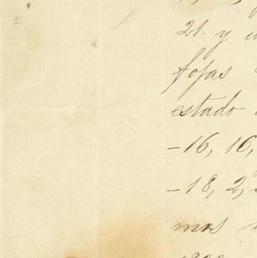 21. y
fojas
estado
-16, 16,
-18, 2,
mos